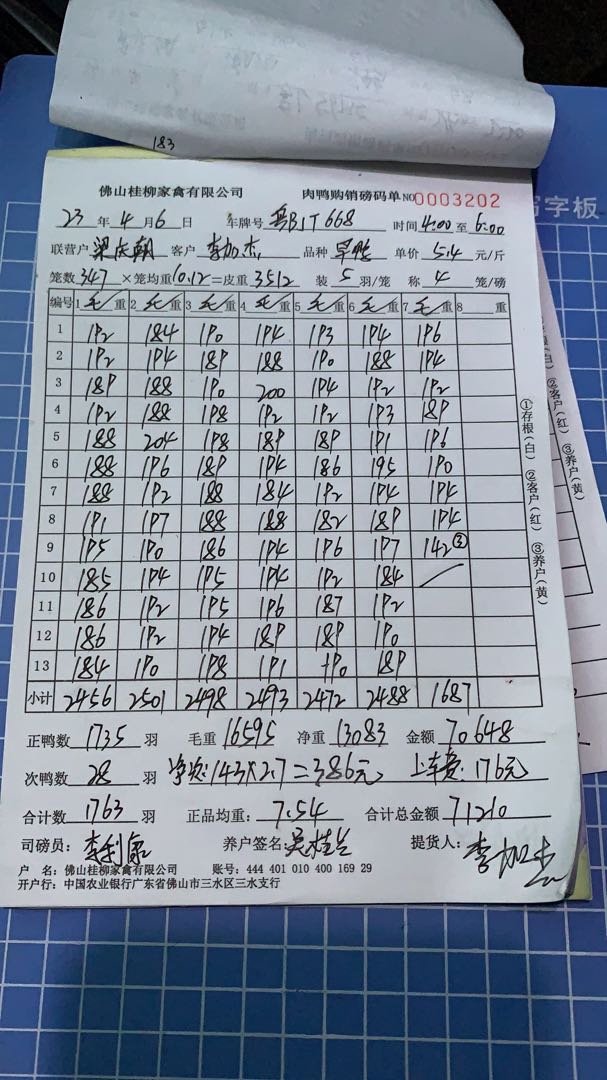 183
佛山桂柳家禽有限公司 肉鸭购销磅码单 NO 0003202
23 年 4 月 6 日 车牌号 粤B1T668 时间 4:00 至 6:00
联营户 梁庆朝 客户 李加杰 品种 旱鸭 单价 5.4 元/斤
笼数 347 ×笼均重 10.12 =皮重 3512 装 5 羽/笼 称 4 笼/磅
编号 1 毛 重 2 毛 重 3 毛 重 4 毛 重 5 毛 重 6 毛 重 7 毛 重 8 重
1 192 184 190 194 193 194 196
2 192 194 189 188 190 188 194
3 189 188 190 200 194 192 192
4 192 188 198 192 192 193 189
5 188 204 198 189 189 191 196
6 188 196 189 194 186 195 190
7 188 192 188 184 192 194 194
8 191 197 188 188 182 189 194
9 195 190 186 194 196 197 142③
10 185 194 195 194 192 184 /
11 186 192 195 196 187 192
12 186 192 194 189 189 190
13 184 190 198 191 190 189
小计 2456 2501 2498 2493 2472 2488 1687
正鸭数 1735 羽 毛重 16595 净重 13083 金额 70648
次鸭数 28 羽 143×2.7=386元 上车费:176元
合计数 1763 羽 正品均重: 7.54 合计总金额 71210
司磅员: 李利康 养户签名: 吴桂兰 提货人: 李加杰
户 名: 佛山桂柳家禽有限公司 账号: 444 401 010 400 169 29
开户行: 中国农业银行广东省佛山市三水区三水支行
①存根(白) ②客户(红) ③养户(黄)
(白) ②客户(红) ③养户(黄)
写字板